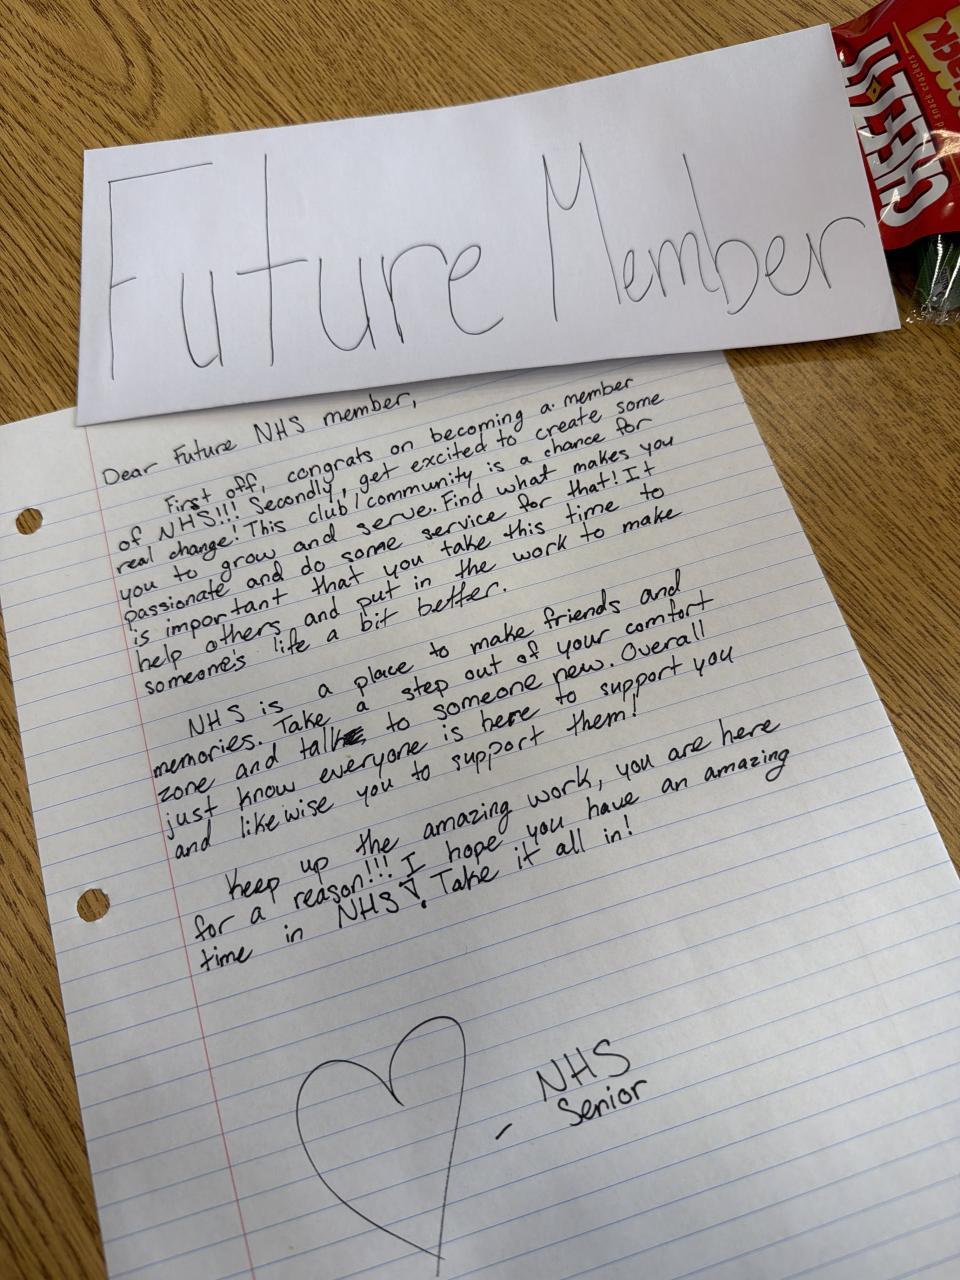 Future Member
CHEEZ-IT
SNACK
d snack crackers
Dear Future NHS member,
First off, congrats on becoming a member
of NHS!!! Secondly, get excited to create some
real change! This club/community is a chance for
you to grow and serve. Find what makes you
passionate and do some service for that! It
is important that you take this time to
help others and put in the work to make
someone's life a bit better.
NHS is a place to make friends and
memories. Take a step out of your comfort
zone and talk to someone new. Overall
just know everyone is here to support you
and likewise you to support them!
Keep up the amazing work, you are here
for a reason!!! I hope you have an amazing
time in NHS! Take it all in!
- NHS
Senior